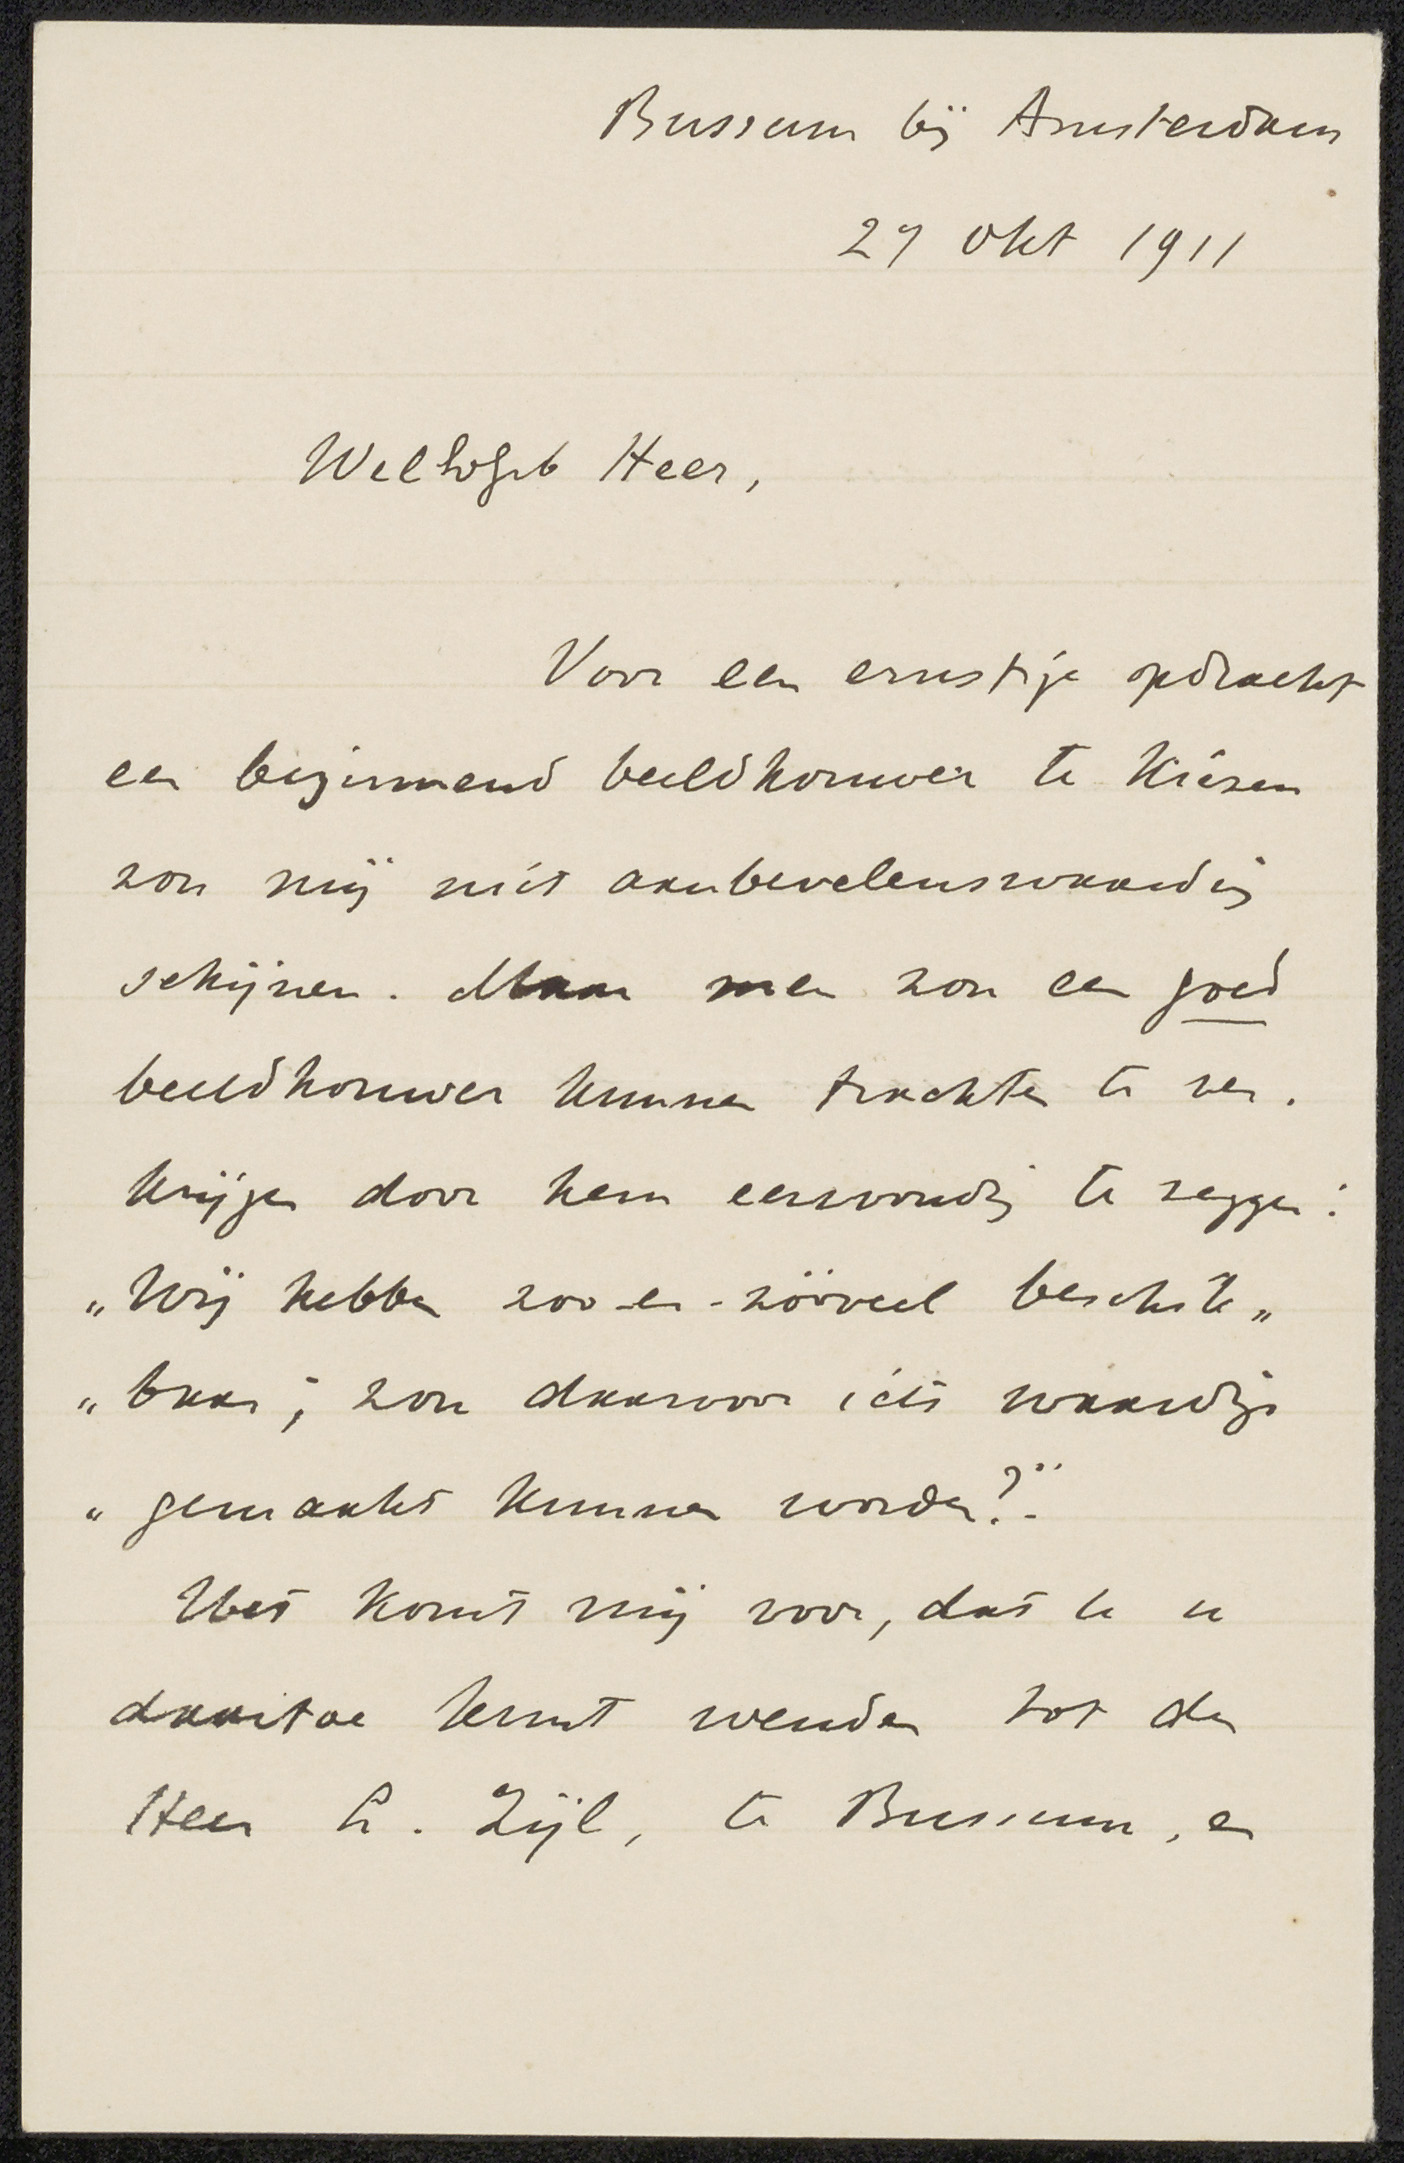 Bussum bij Amsterdam
27 Okt 1911
WelEdGeb Heer,
Voor een ernstige opdracht
een beginnend beeldhouwer te kiezen
zou mij niet aanbevelenswaardig
schijnen. Maar men zou een goed
beeldhouwer kunnen trachten te ver-
krijgen door hem eenvoudig te zeggen:
„Wij hebben zoo-en-zóóveel beschik„
„baar; zou daarvoor iets waardigs
„gemaakt kunnen worden?"
Het komt mij voor, dat u
daartoe kunt wenden tot den
Heer L. Zijl, te Bussum, en